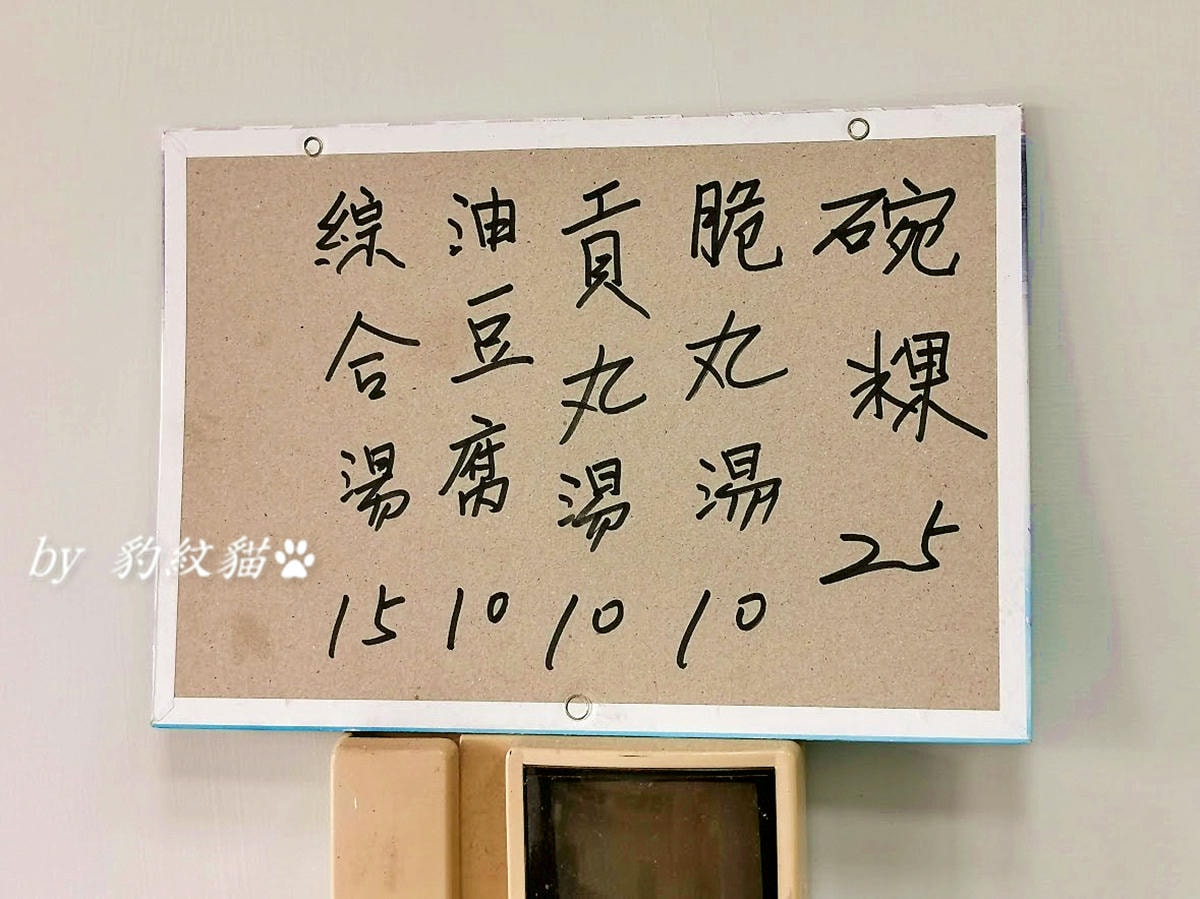 碗粿 25
脆丸湯 10
貢丸湯 10
油豆腐 10
綜合湯 15
by 豹紋貓